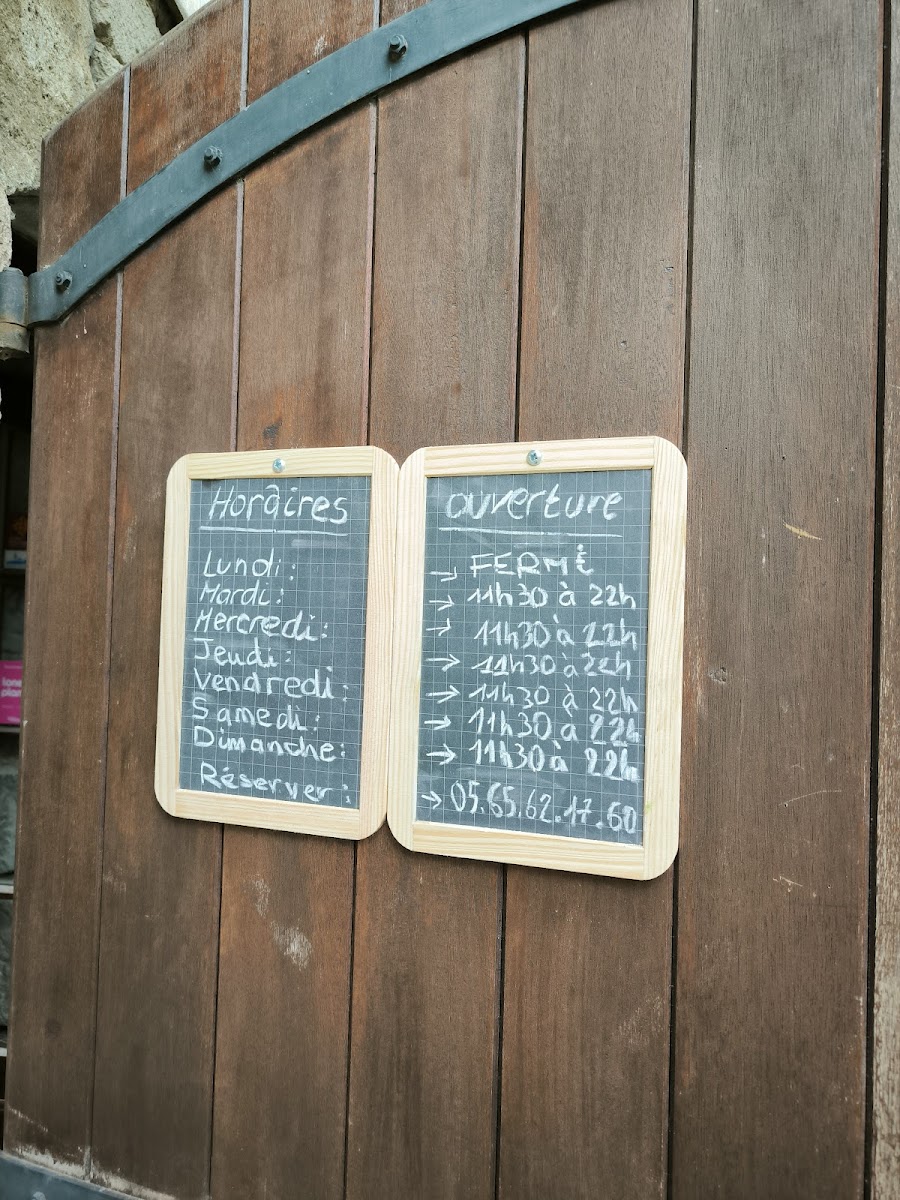 Horaires ouverture
Lundi: → FERMÉ
Mardi: → 11h30 à 22h
Mercredi: → 11h30 à 22h
Jeudi: → 11h30 à 22h
Vendredi: → 11h30 à 22h
Samedi: → 11h30 à 22h
Dimanche: → 11h30 à 22h
Réserver: → 05.65.62.17.60